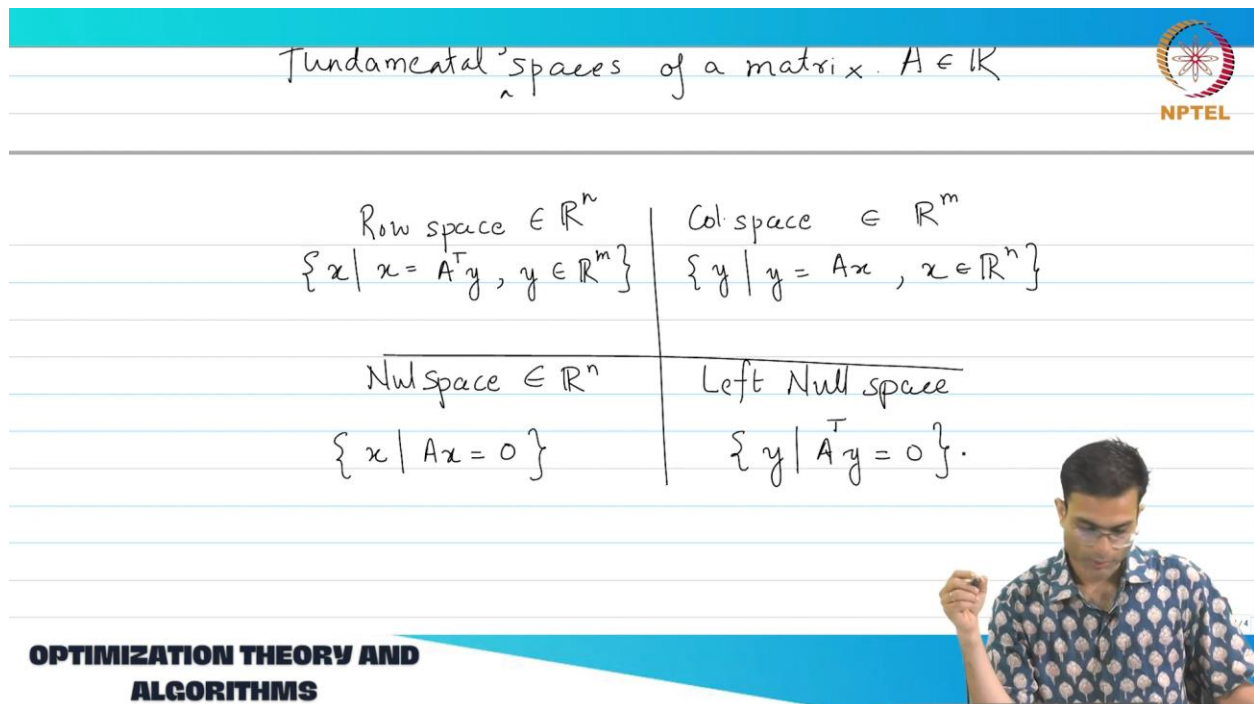 Fundamental spaces of a matrix. A ∈ ℝ
NPTEL
Row space ∈ ℝⁿ
{ x | x = Aᵀy , y ∈ ℝᵐ }
Col. space ∈ ℝᵐ
{ y | y = Ax , x ∈ ℝⁿ }
Nul space ∈ ℝⁿ
{ x | Ax = 0 }
Left Null space
{ y | Aᵀy = 0 }.
OPTIMIZATION THEORY AND
ALGORITHMS